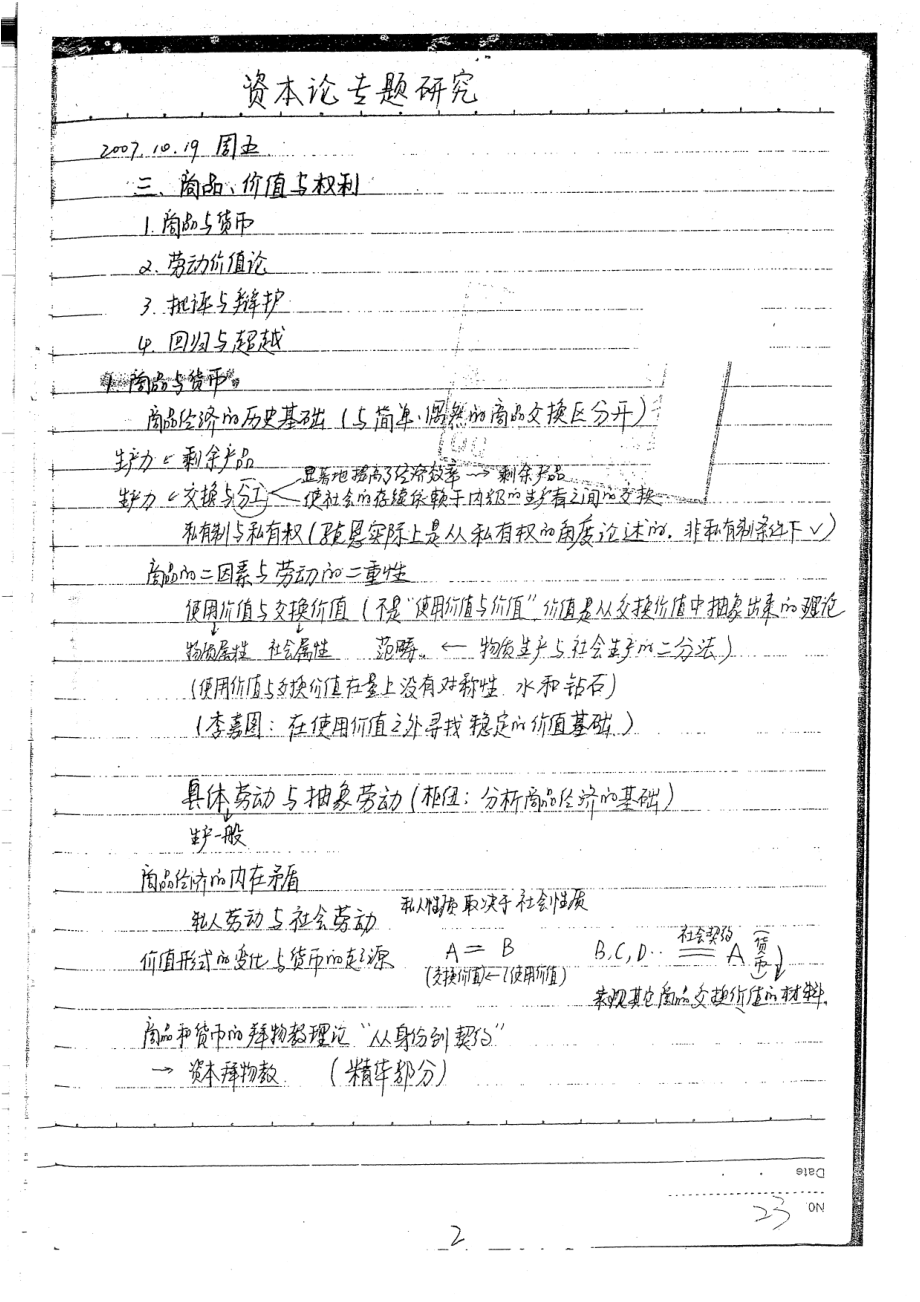 资本论专题研究
2007.10.19 周五
三、商品、价值与权利
1. 商品与货币
2. 劳动价值论
3. 批评与辩护
4. 回归与超越
1. 商品与货币
商品经济的历史基础 (与简单、偶然的商品交换区分开)
生产力 ← 剩余产品
显著地提高了经济效率 → 剩余产品
生产力 ← 交换与分工 使社会的存续依赖于内部的生产者之间的交换
私有制与私有权 (马恩实际上是从私有权的角度论述的. 非私有制条件下 ✓)
商品的二因素与劳动的二重性
使用价值与交换价值 (不是“使用价值与价值” 价值是从交换价值中抽象出来的理论
物质属性 社会属性 范畴. ← 物质生产与社会生产的二分法)
(使用价值与交换价值在量上没有对称性. 水和钻石)
(李嘉图: 在使用价值之外寻找稳定的价值基础.)
具体劳动与抽象劳动 (枢纽: 分析商品经济的基础)
生产一般
商品经济的内在矛盾
私人劳动与社会劳动 私人性质取决于社会性质
价值形式的变化与货币的起源 A = B B, C, D… 社会契约 A (货币)
(交换价值) ← (使用价值) 表现其它商品交换价值的材料.
商品和货币的拜物教理论 “从身份到契约”
→ 资本拜物教 (精华部分)
Date
NO 23
2